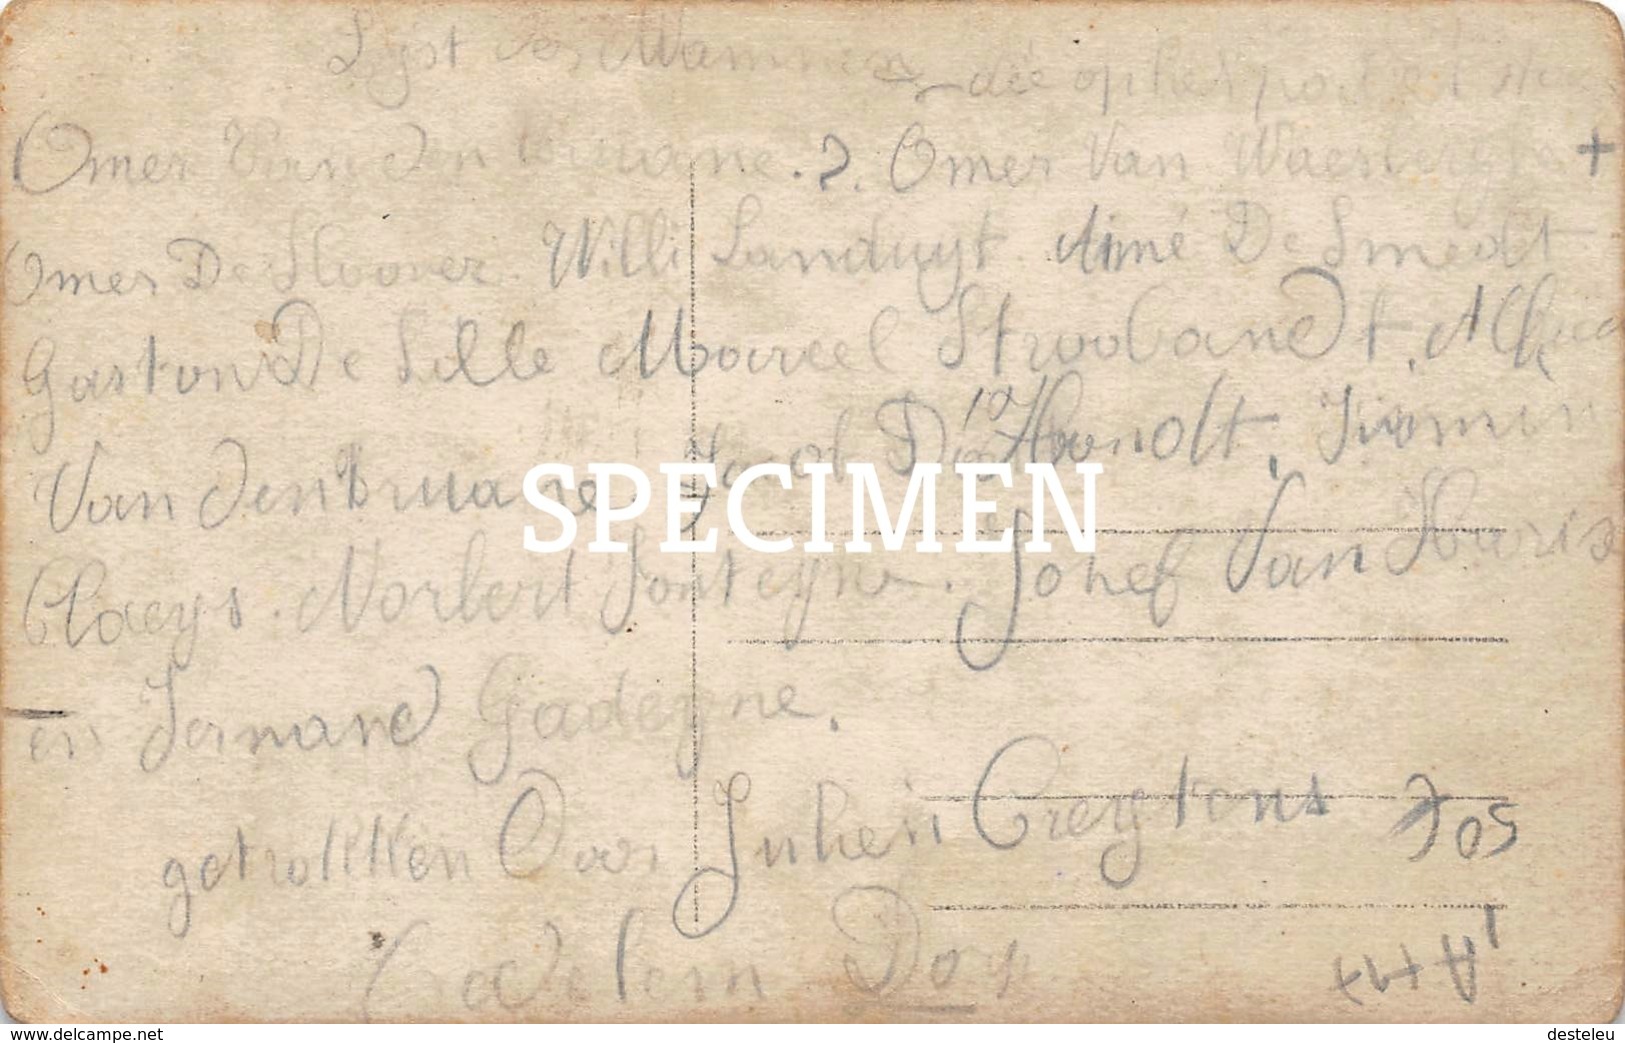 Lijst der Mannen die op het portret staan
Omer Van den bruane. 2. Omer Van Waesberghe +
Omer De Sloover Willi Landuyt Aimé De Smedt
Gaston De Sille Marcel Stroobandt, Alfred
Van den bruane. Jacob D'Hondt, Firmin
Claeys. Norbert Fonteyne. Johef Van
en Fernand Gadeyne.
getrokken Door Julien Creytens Jos
Dorp
SPECIMEN
www.delcampe.net
desteleu